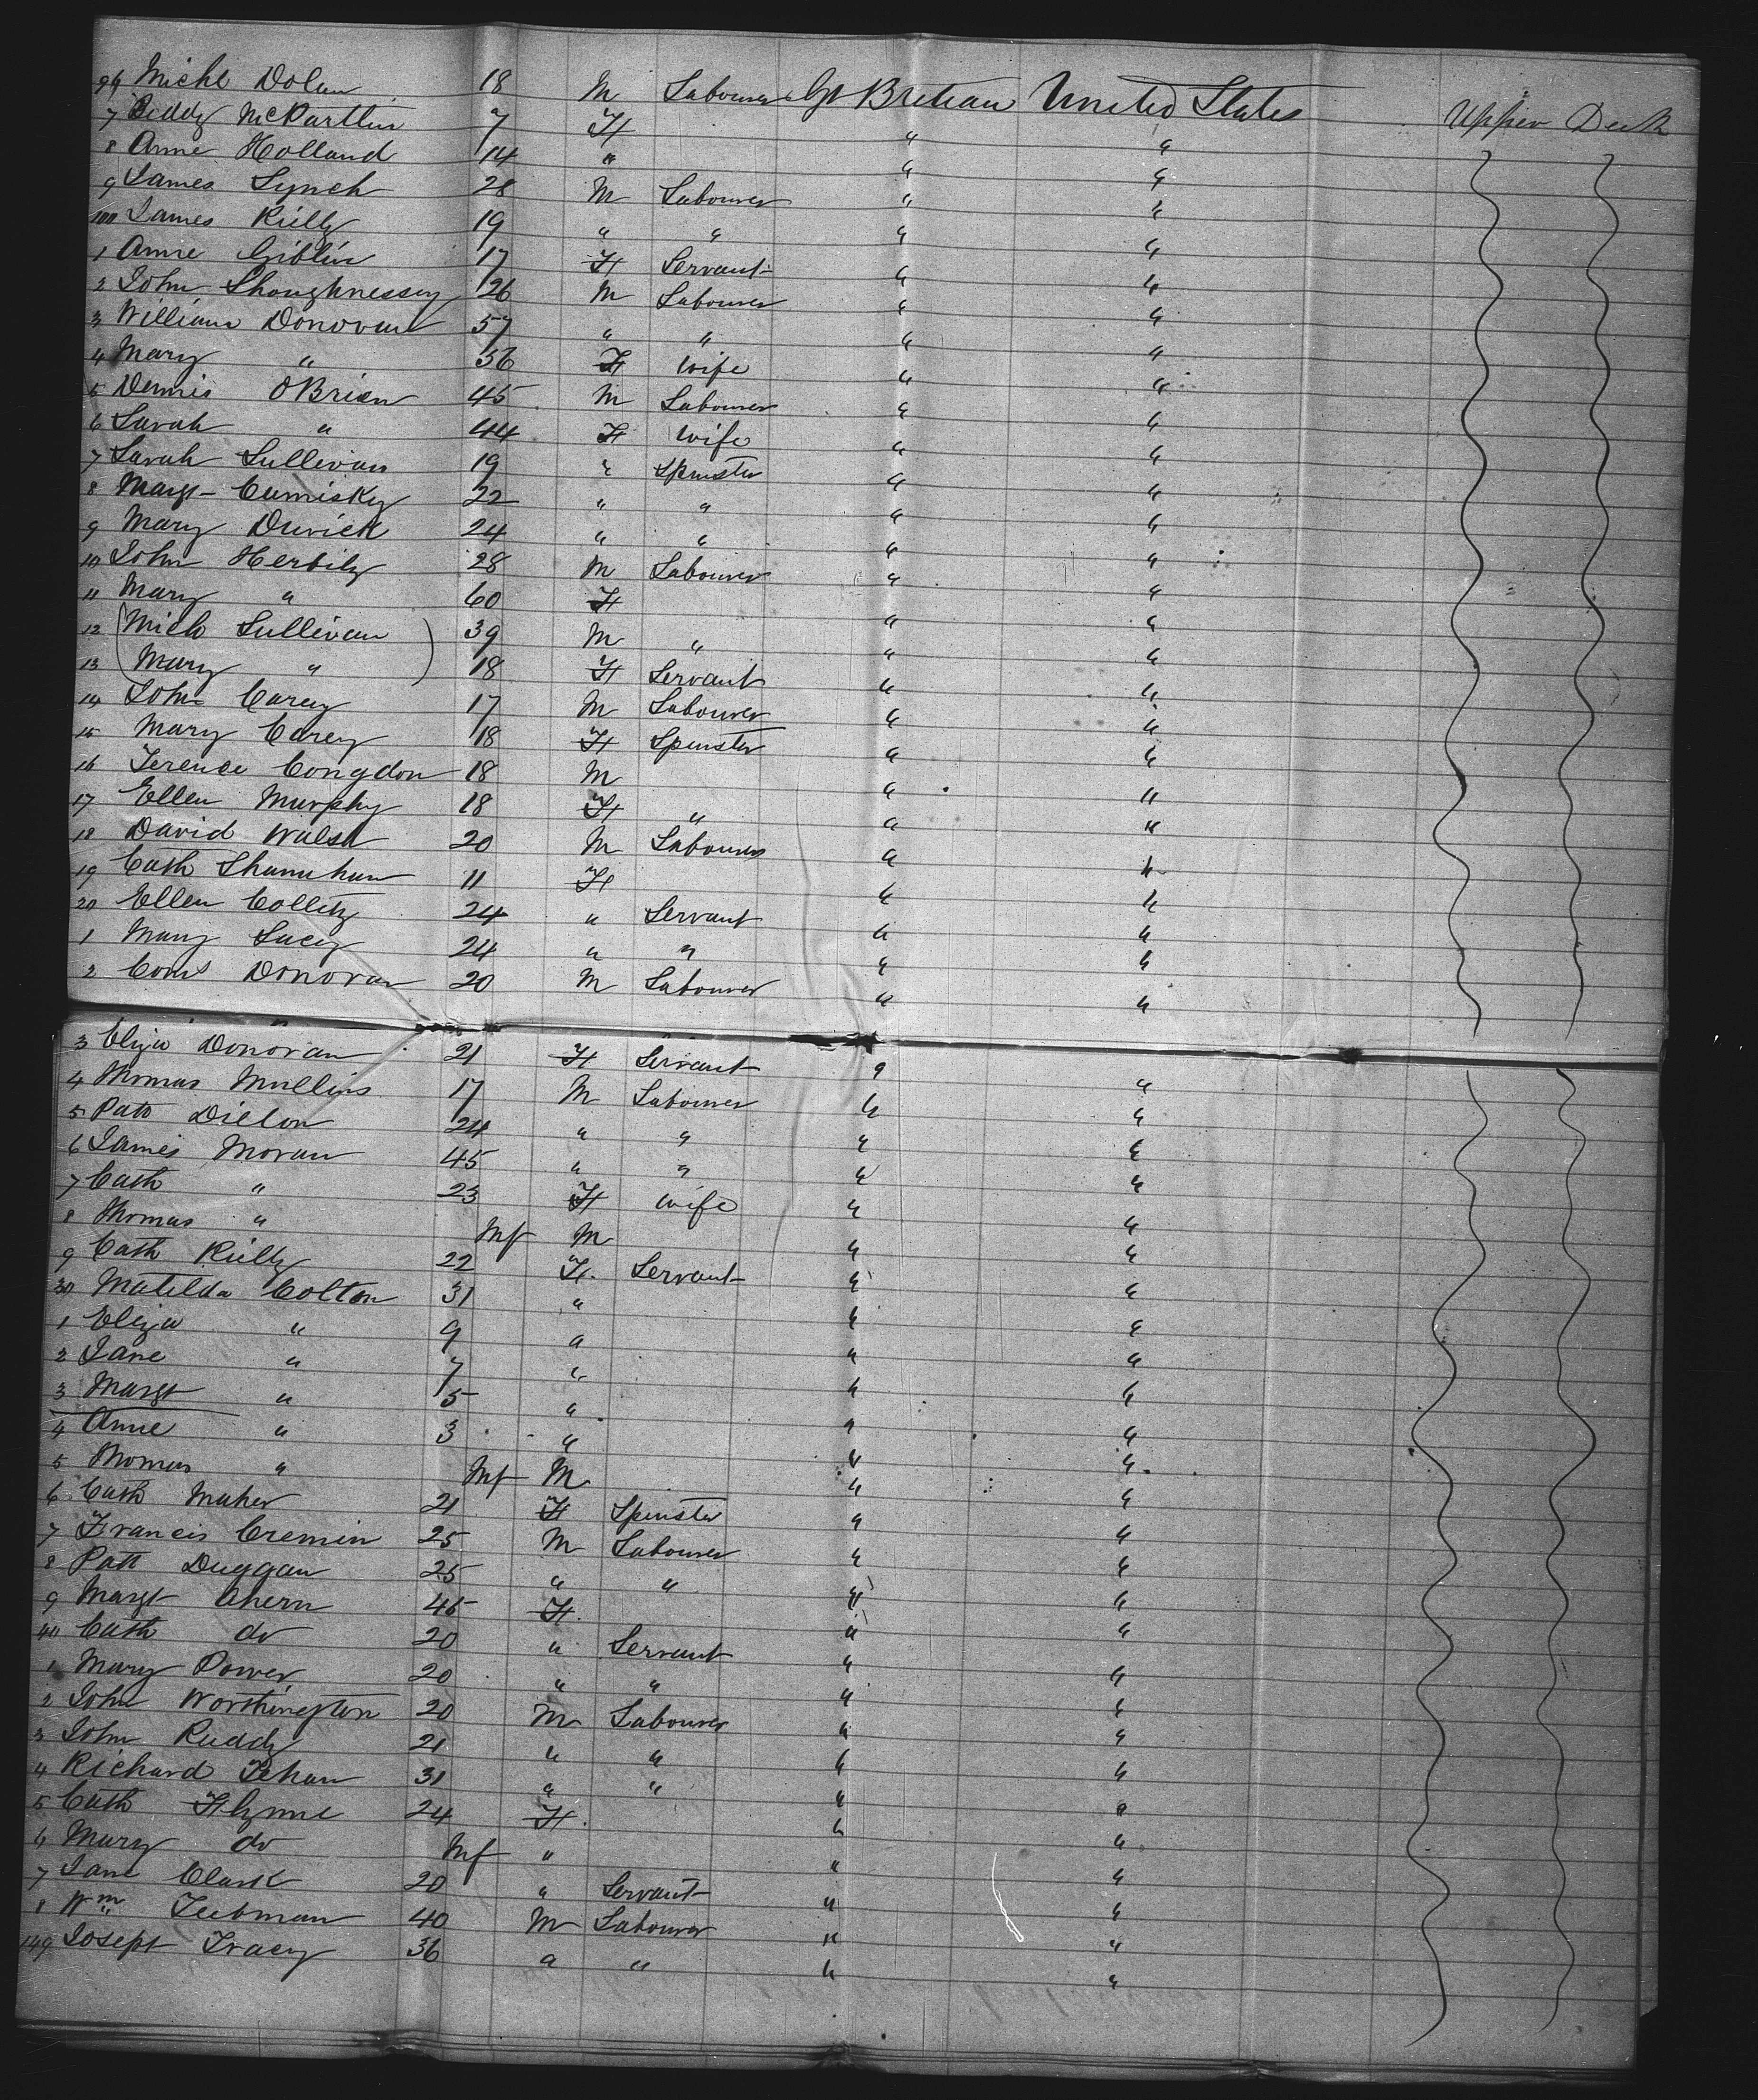 96 Michl Dolan 18 M Labourer Gt Britian United States Upper Deck
7 Biddy McPartlin 7 F " "
8 Anne Holland 14 " " "
9 James Lynch 28 M Labourer " "
100 James Rielly 19 " " " "
1 Anne Giblin 17 F Servant " "
2 John Shoughnessy 26 M Labourer " "
3 William Donovan 57 " " " "
4 Mary " 56 F Wife " "
5 Dennis OBrien 45 M Labourer " "
6 Sarah " 44 F Wife " "
7 Sarah Sullivan 19 " Spinster " "
8 Margt Cumisky 22 " " " "
9 Mary 24 " " " "
10 John Herbily 28 M Labourer " "
11 Mary " 60 F " "
12 Mich Sullivan 39 M " " "
13 Mary " 18 F Servant " "
14 John Carey 17 M Labourer " "
15 Mary Carey 18 F Spinster " "
16 Terence Congdon 18 M " "
17 Ellen Murphy 18 F " " "
18 David Walsh 20 M Labourer " "
19 Cath Shanahan 11 F " "
20 Ellen 24 " Servant " "
1 Mary Lacey 24 " " " "
2 Corns Donovan 20 M Labourer " "
3 Eliza Donovan 21 F Servant " "
4 Thomas Mullins 17 M Labourer " "
5 Patt Dillon 24 " " " "
6 James Moran 45 " " " "
7 Cath " 23 F Wife " "
8 Thomas " Inf M " "
9 Cath Rielly 22 F Servant " "
30 Matilda Colton 31 " " "
1 Eliza " 9 " " "
2 Jane " 7 " " "
3 Margt " 5 " " "
4 Anne " 3 " " "
5 Thomas " Inf M " "
6 Cath Maher 21 F Spinster " "
7 Francis Cremin 25 M Labourer " "
8 Patt Duggan 25 " " " "
9 Margt Ahern 45 F " "
40 Cath do 20 " Servant " "
1 Mary Power 20 " " " "
2 John Worthington 20 M Labourer " "
3 John Ruddy 21 " " " "
4 Richard Tehan 31 " " " "
5 Cath Flynne 24 F " "
6 Mary do Inf " " "
7 Jane Clark 20 " Servant " "
8 Wm Tubman 40 M Labourer " "
149 Joseph Tracey 36 " " " "